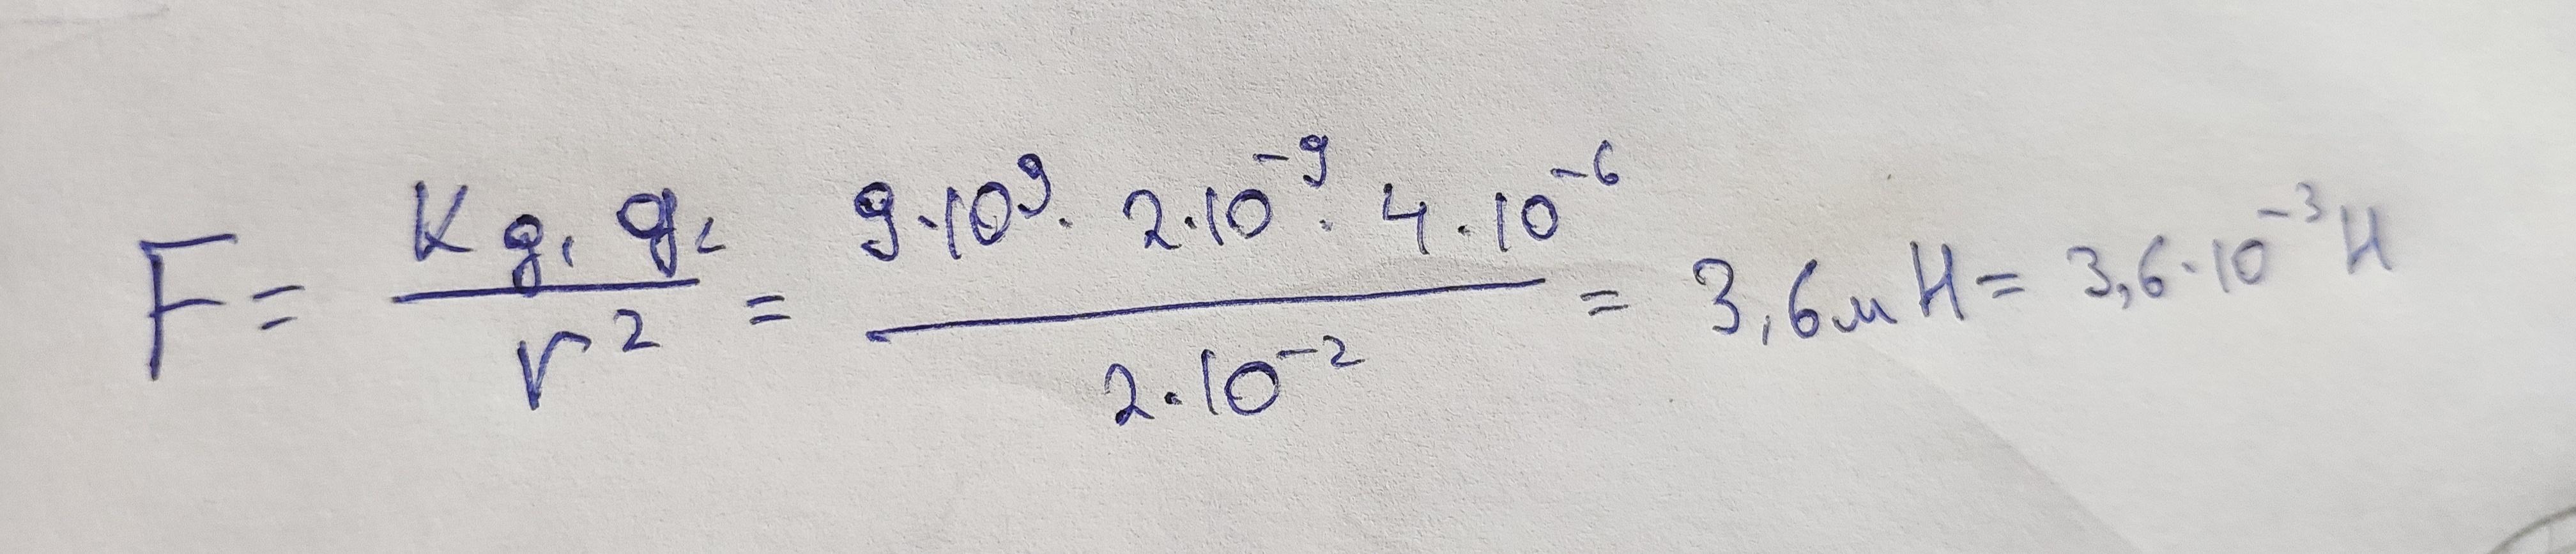 F = K q₁ q₂ / r² = 9·10⁹· 2·10⁻⁹· 4·10⁻⁶ / 2·10⁻² = 3,6 мН = 3,6·10⁻³ Н